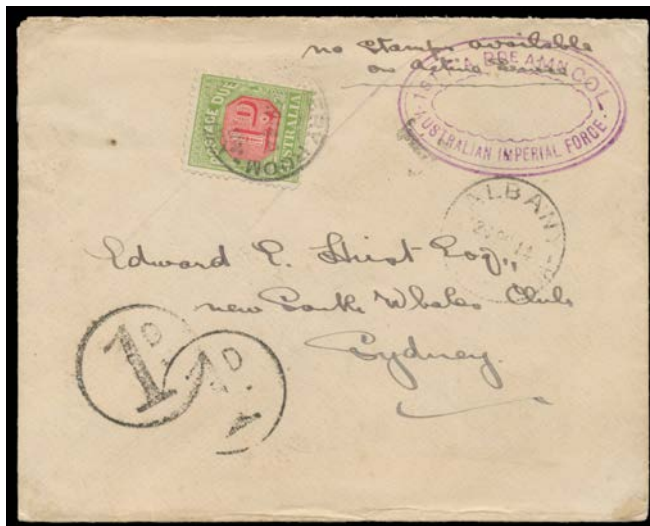 no Stamps available
on Active Service
AMN COL
AUSTRALIAN IMPERIAL FORCE.
POSTAGE DUE
1D
AUSTRALIA
ROOM
ALBANY
14
Edward E. Hirst Esq.,
new South Whales Club
Sydney.
1D.
1D.